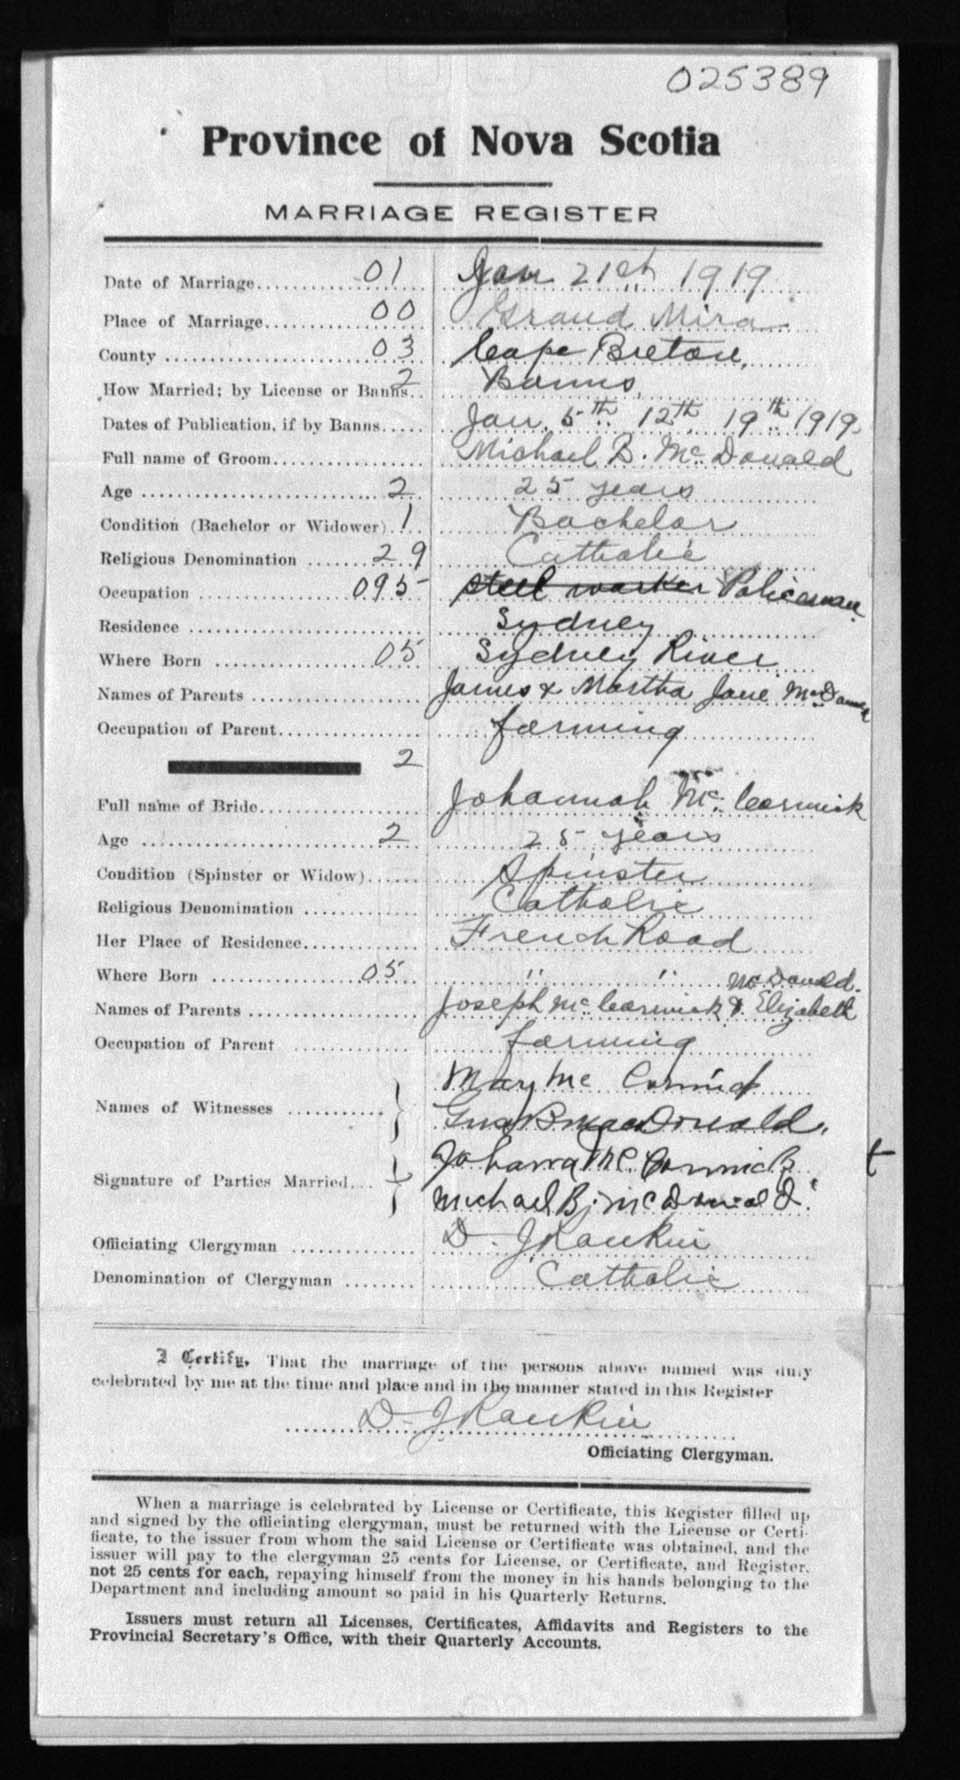 025389
Province of Nova Scotia
MARRIAGE REGISTER
Date of Marriage 01 Jan 21st 1919
Place of Marriage 00 Grand Mira
County 03 Cape Breton,
How Married; by License or Banns 2 Banns
Dates of Publication, if by Banns Jan. 5th 12th 19th 1919.
Full name of Groom Michael B. McDonald
Age 2 25 years
Condition (Bachelor or Widower) 1 Bachelor
Religious Denomination 29 Catholic
Occupation 095 steel worker Policeman
Residence Sydney
Where Born 05 Sydney River
Names of Parents James & Martha Jane McDonald
Occupation of Parent farming
2
Full name of Bride Johannah McCormick
Age 2 25 years
Condition (Spinster or Widow) Spinster
Religious Denomination Catholic
Her Place of Residence French Road
Where Born 05 " "
McDonald.
Names of Parents Joseph McCormick & Elizabeth
Occupation of Parent farming
Mary McCormick
Names of Witnesses
B MacDonald.
Johanna McCormick t
Signature of Parties Married
Michael B. McDonald
Officiating Clergyman D. J Rankin
Denomination of Clergyman Catholic
I Certify, That the marriage of the persons above named was duly
celebrated by me at the time and place and in the manner stated in this Register
D. J Rankin
Officiating Clergyman.
When a marriage is celebrated by License or Certificate, this Register filled up
and signed by the officiating clergyman, must be returned with the License or Certi-
ficate, to the issuer from whom the said License or Certificate was obtained, and the
issuer will pay to the clergyman 25 cents for License, or Certificate, and Register,
not 25 cents for each, repaying himself from the money in his hands belonging to the
Department and including amount so paid in his Quarterly Returns.
Issuers must return all Licenses, Certificates, Affidavits and Registers to the
Provincial Secretary's Office, with their Quarterly Accounts.